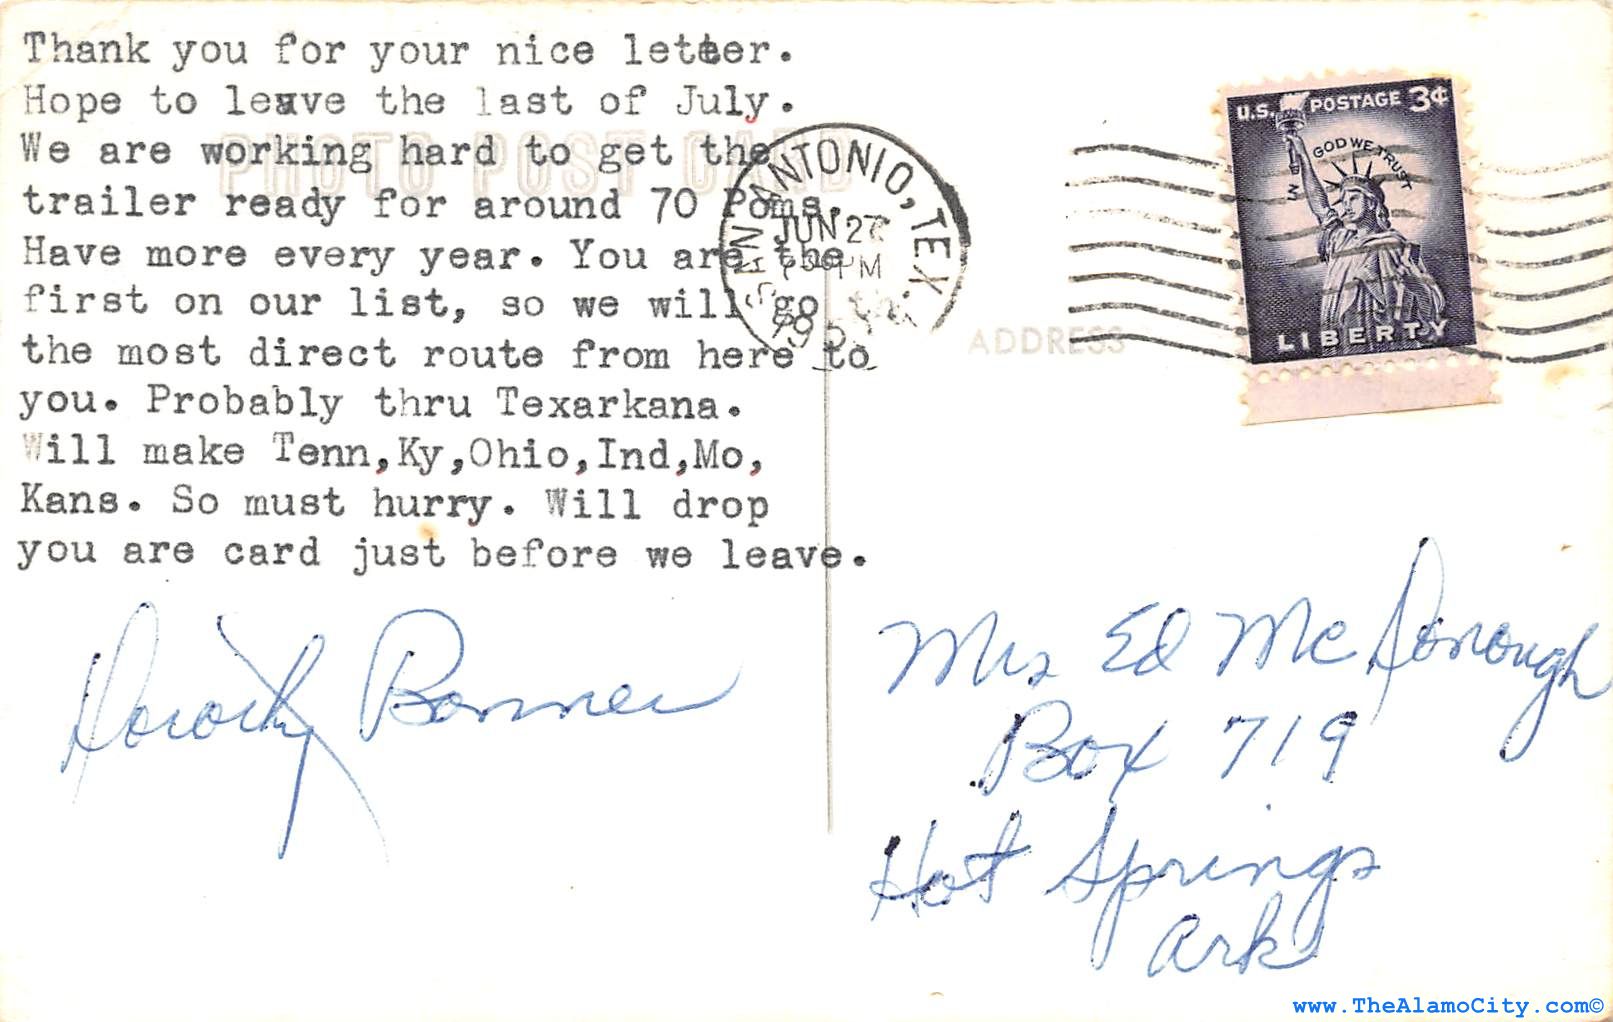 Thank you for your nice letter.
Hope to leave the last of July.
We are working hard to get the
trailer ready for around 70 Poms.
Have more every year. You are the
first on our list, so we will go
the most direct route from here to
you. Probably thru Texarkana.
Will make Tenn,Ky,Ohio,Ind,Mo,
Kans. So must hurry. Will drop
you are card just before we leave.
Dorothy Bonner
PHOTO POST CARD
SAN ANTONIO, TEX.
JUN 27
PM
ADDRESS
U.S. POSTAGE 3¢
IN GOD WE TRUST
LIBERTY
Mrs Ed McDonough
Box 719
Hot Springs
Ark
www.TheAlamoCity.com©